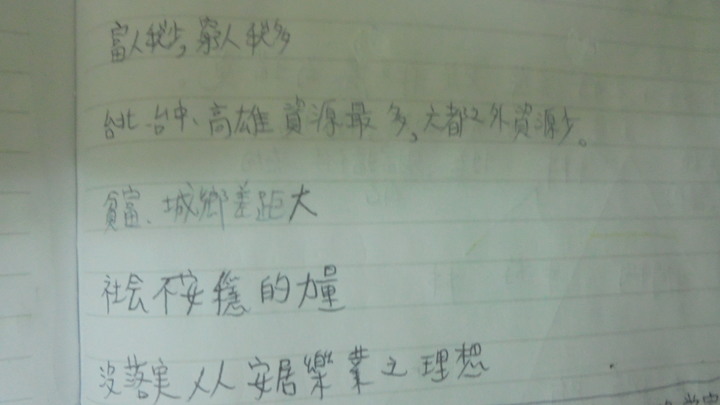 富人稅少,窮人稅多
台北、台中、高雄資源最多,大都之外資源少。
貧富、城鄉差距大
社会不安穩的力量
沒落実人人安居樂業之理想